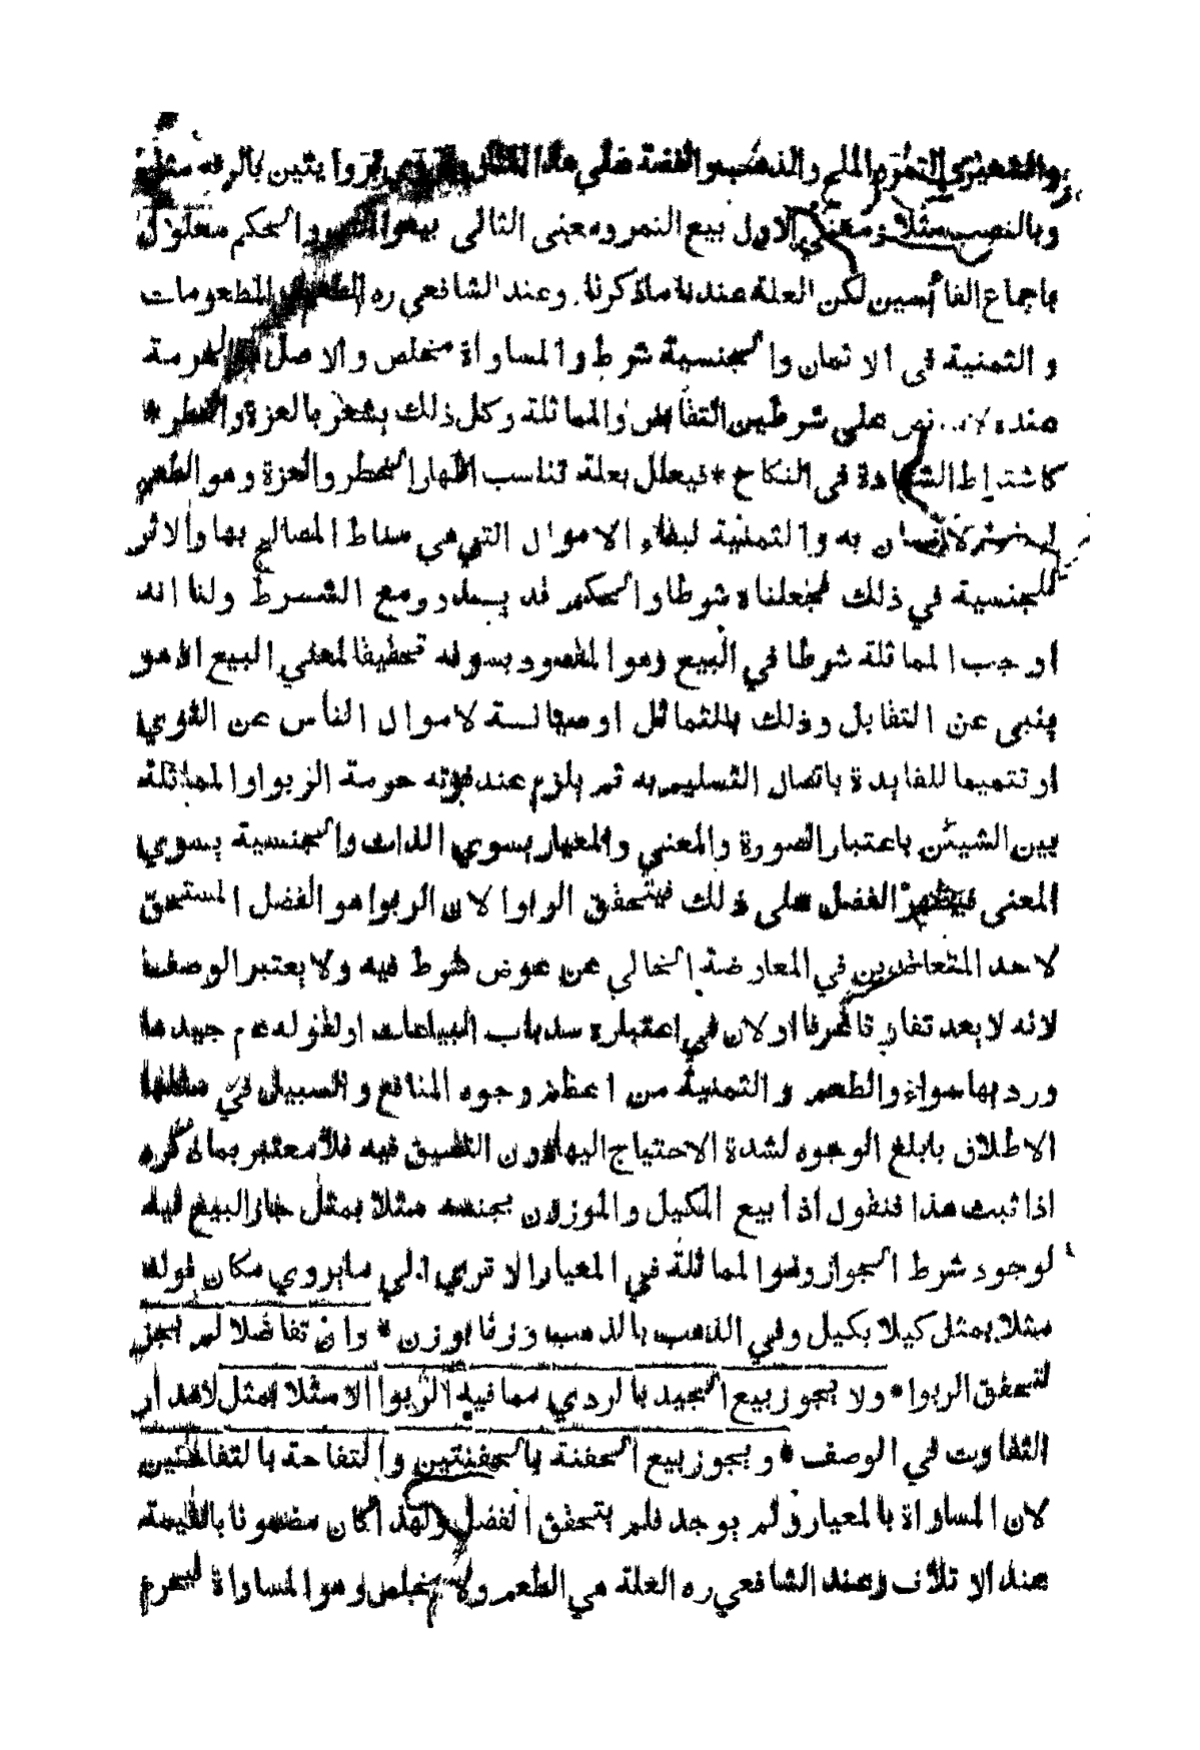 والشعير والتمر والملح والذهب والفضة على هذا المثال ويروى بروايتين بالرفع مثل
وبالنصب مثلا ومعنى الاول بيع التمر ومعنى الثاني بيعوا التمر والحكم معلول
باجماع القائسين لكن العلة عندنا ماذكرنا وعند الشافعي ره الطعم في المطعومات
و الثمنية في الا ثمان والجنسية شرط والمساواة مخلص والاصل هو الحرمة
عنده لانه نص على شرطين التقابض والمماثلة وكل ذلك يشعر بالعزة والخطر *
كاشتراط الشهادة في النكاح * فيعلل بعلة تناسب اظهار الخطر والعزة وهو الطعم
لبقاء الانسان به والثمنية لبقاء الاموال التي هي مناط المصالح بها ولا اثر
للجنسية في ذلك فجعلناه شرطا والحكم قد يدور مع الشرط ولنا انه
اوجب المماثلة شرطا في البيع وهو المقصود بسوقه تحقيقا لمعنى البيع اذ هو
ينبي عن التقابل وذلك بالتماثل او صيانة لاموال الناس عن التوي
او تتميما للفايدة باتصال التسليم به ثم يلزم عند فوته حرمة الربوا والمماثلة
بين الشيئين باعتبار الصورة والمعنى والمعيار يسوي الذات والجنسية يسوي
المعنى فيظهر الفضل على ذلك فيتحقق الربوا لان الربوا هو الفضل المستحق
لاحد المتعاقدين في المعاوضة الخالي عن عوض شرط فيه ولا يعتبر الوصف
لانه لا يعد تفاوتا عرفا او لان في اعتباره سد باب البياعات او لقوله عم جيدها
ورديها سواء والطعم و الثمنية من اعظم وجوه المنافع و السبيل في مثلها
الاطلاق بابلغ الوجوه لشدة الاحتياج اليها دون التضييق فيه فلا معتبر بما ذكره
اذا ثبت هذا فنقول اذا بيع المكيل و الموزون بجنسه مثلا بمثل جاز البيع فيه
لوجود شرط الجواز وهو المماثلة في المعيار الا تري الى مايروي مكان قوله
مثلا بمثل كيلا بكيل وفي الذهب بالذهب وزنا بوزن * وان تفاضلا لم يجز
لتحقق الربوا * ولا يجوز بيع الجيد بالردي مما فيه الربوا الا مثلا بمثل لاهدار
التفاوت في الوصف * و يجوز بيع الحفنة بالحفنتين والتفاحة بالتفاحتين
لان المساواة بالمعيار ولم يوجد فلم يتحقق الفضل ولهذا كان مضمونا بالقيمة
عند الا تلاف وعند الشافعي ره العلة هي الطعم ولا مخلص وهو المساواة فيحرم